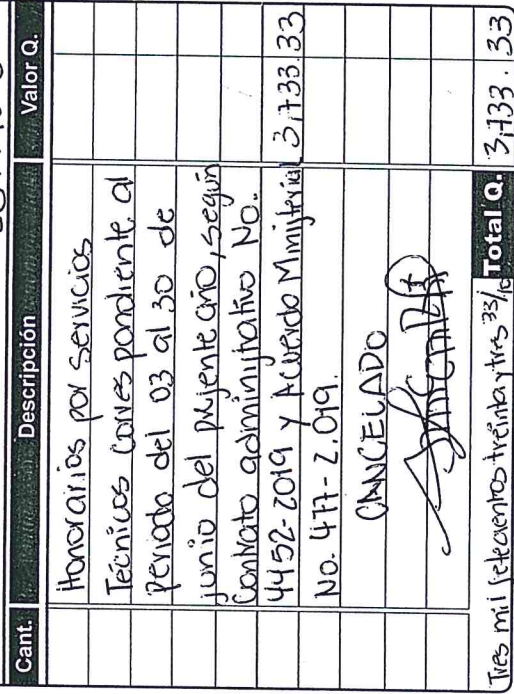 Cant. Descripción Valor Q.
Honorarios por servicios
Técnicos correspondiente al
periodo del 03 al 30 de
junio del presente año, según
Contrato administrativo No.
4452-2019 y Acuerdo Ministerial 3,733.33
No. 477-2,019.
CANCELADO
Tres mil setecientos treinta y tres 33/ Total Q. 3,733.33